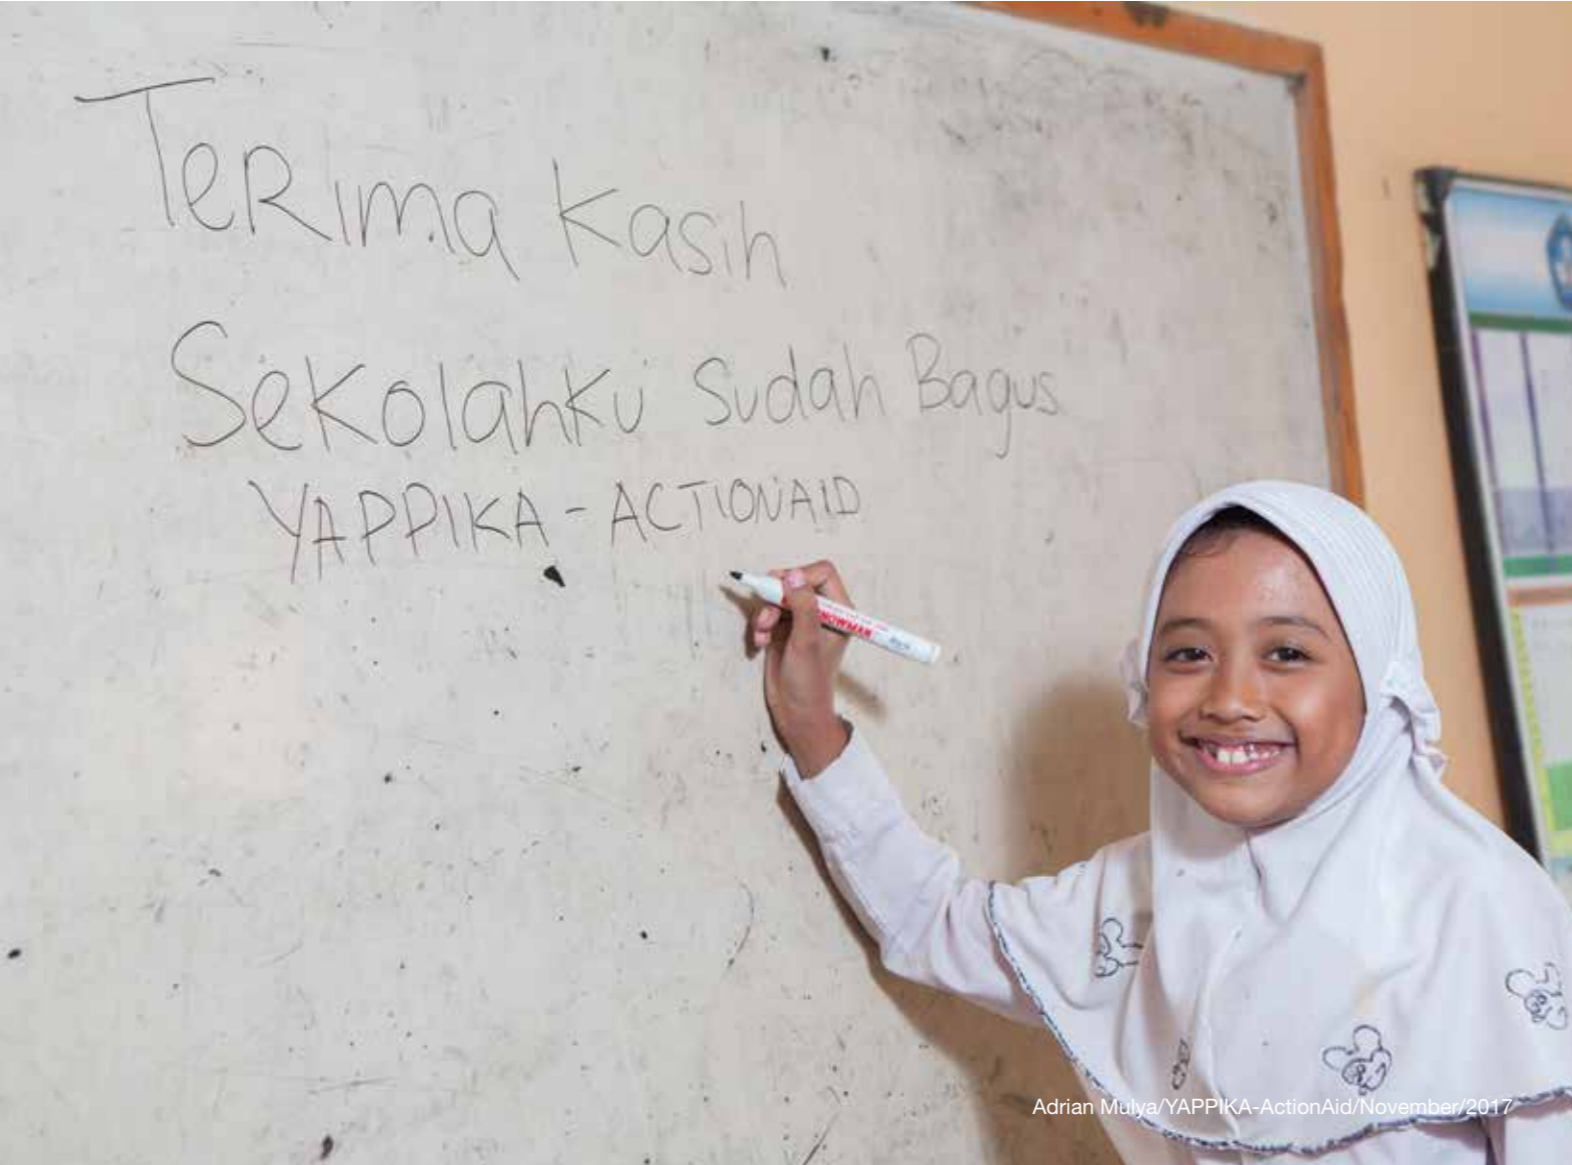 TeRima Kasih
SeKolahKu Sudah Bagus
YAPPIKA - ACTIONAID
SNOWMAN
Adrian Mulya/YAPPIKA-ActionAid/November/2017